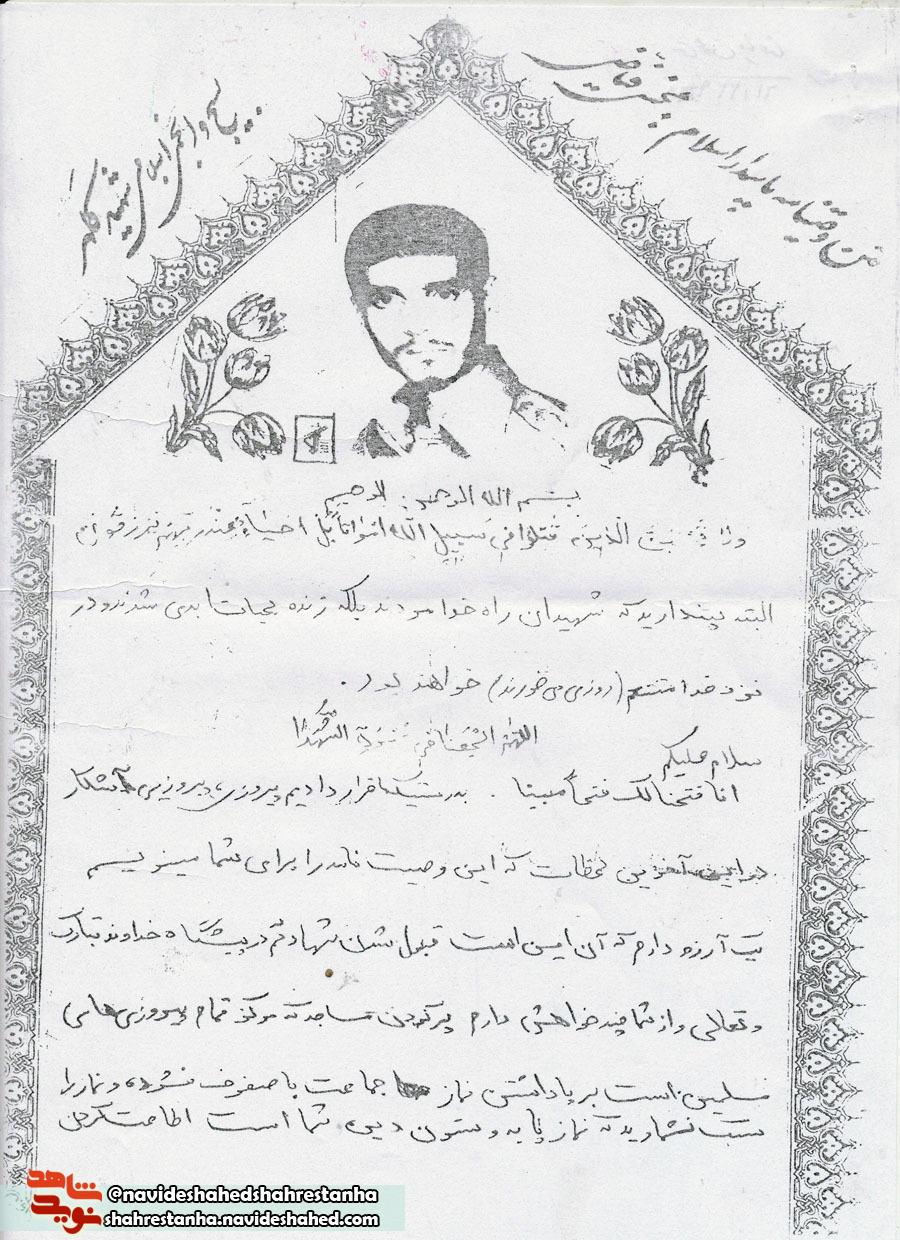 متن وصیتنامه پاسدار اسلام
بسیج و انجمن اسلامی شهید
بسم الله الرحمن الرحیم
الذین قتلوا فی سبیل الله امواتا بل احیاء عند ربهم یرزقون
البته پندارید که شهیدان راه خدا مردند بلکه زنده بحیات ابدی شدند و در
نزد خدا متنعم (روزی می خورند) خواهند بود.
اللهم الشهدا
سلام علیکم
انا فتحنا لک فتحا مبینا . بدرستیکه قرار دادیم پیروزی، پیروزیی آشکار
در این آخرین لحظات که این وصیت نامه را برای شما مینویسم
یک آرزو دارم که آن این است قبول شدن شهادتم در پیشگاه خداوند تبارک
و تعالی و از شما چند خواهش دارم پر کردن مساجد که مرکز تمام پیروزی های
مسلمین است برپاداشتن نماز جماعت با صفوف فشرده و نماز را
سبک نشمارید که نماز پایه و ستون دین شما است اطاعت کردن
شاهد
نوید
@navideshahedshahrestanha
shahrestanha.navideshahed.com